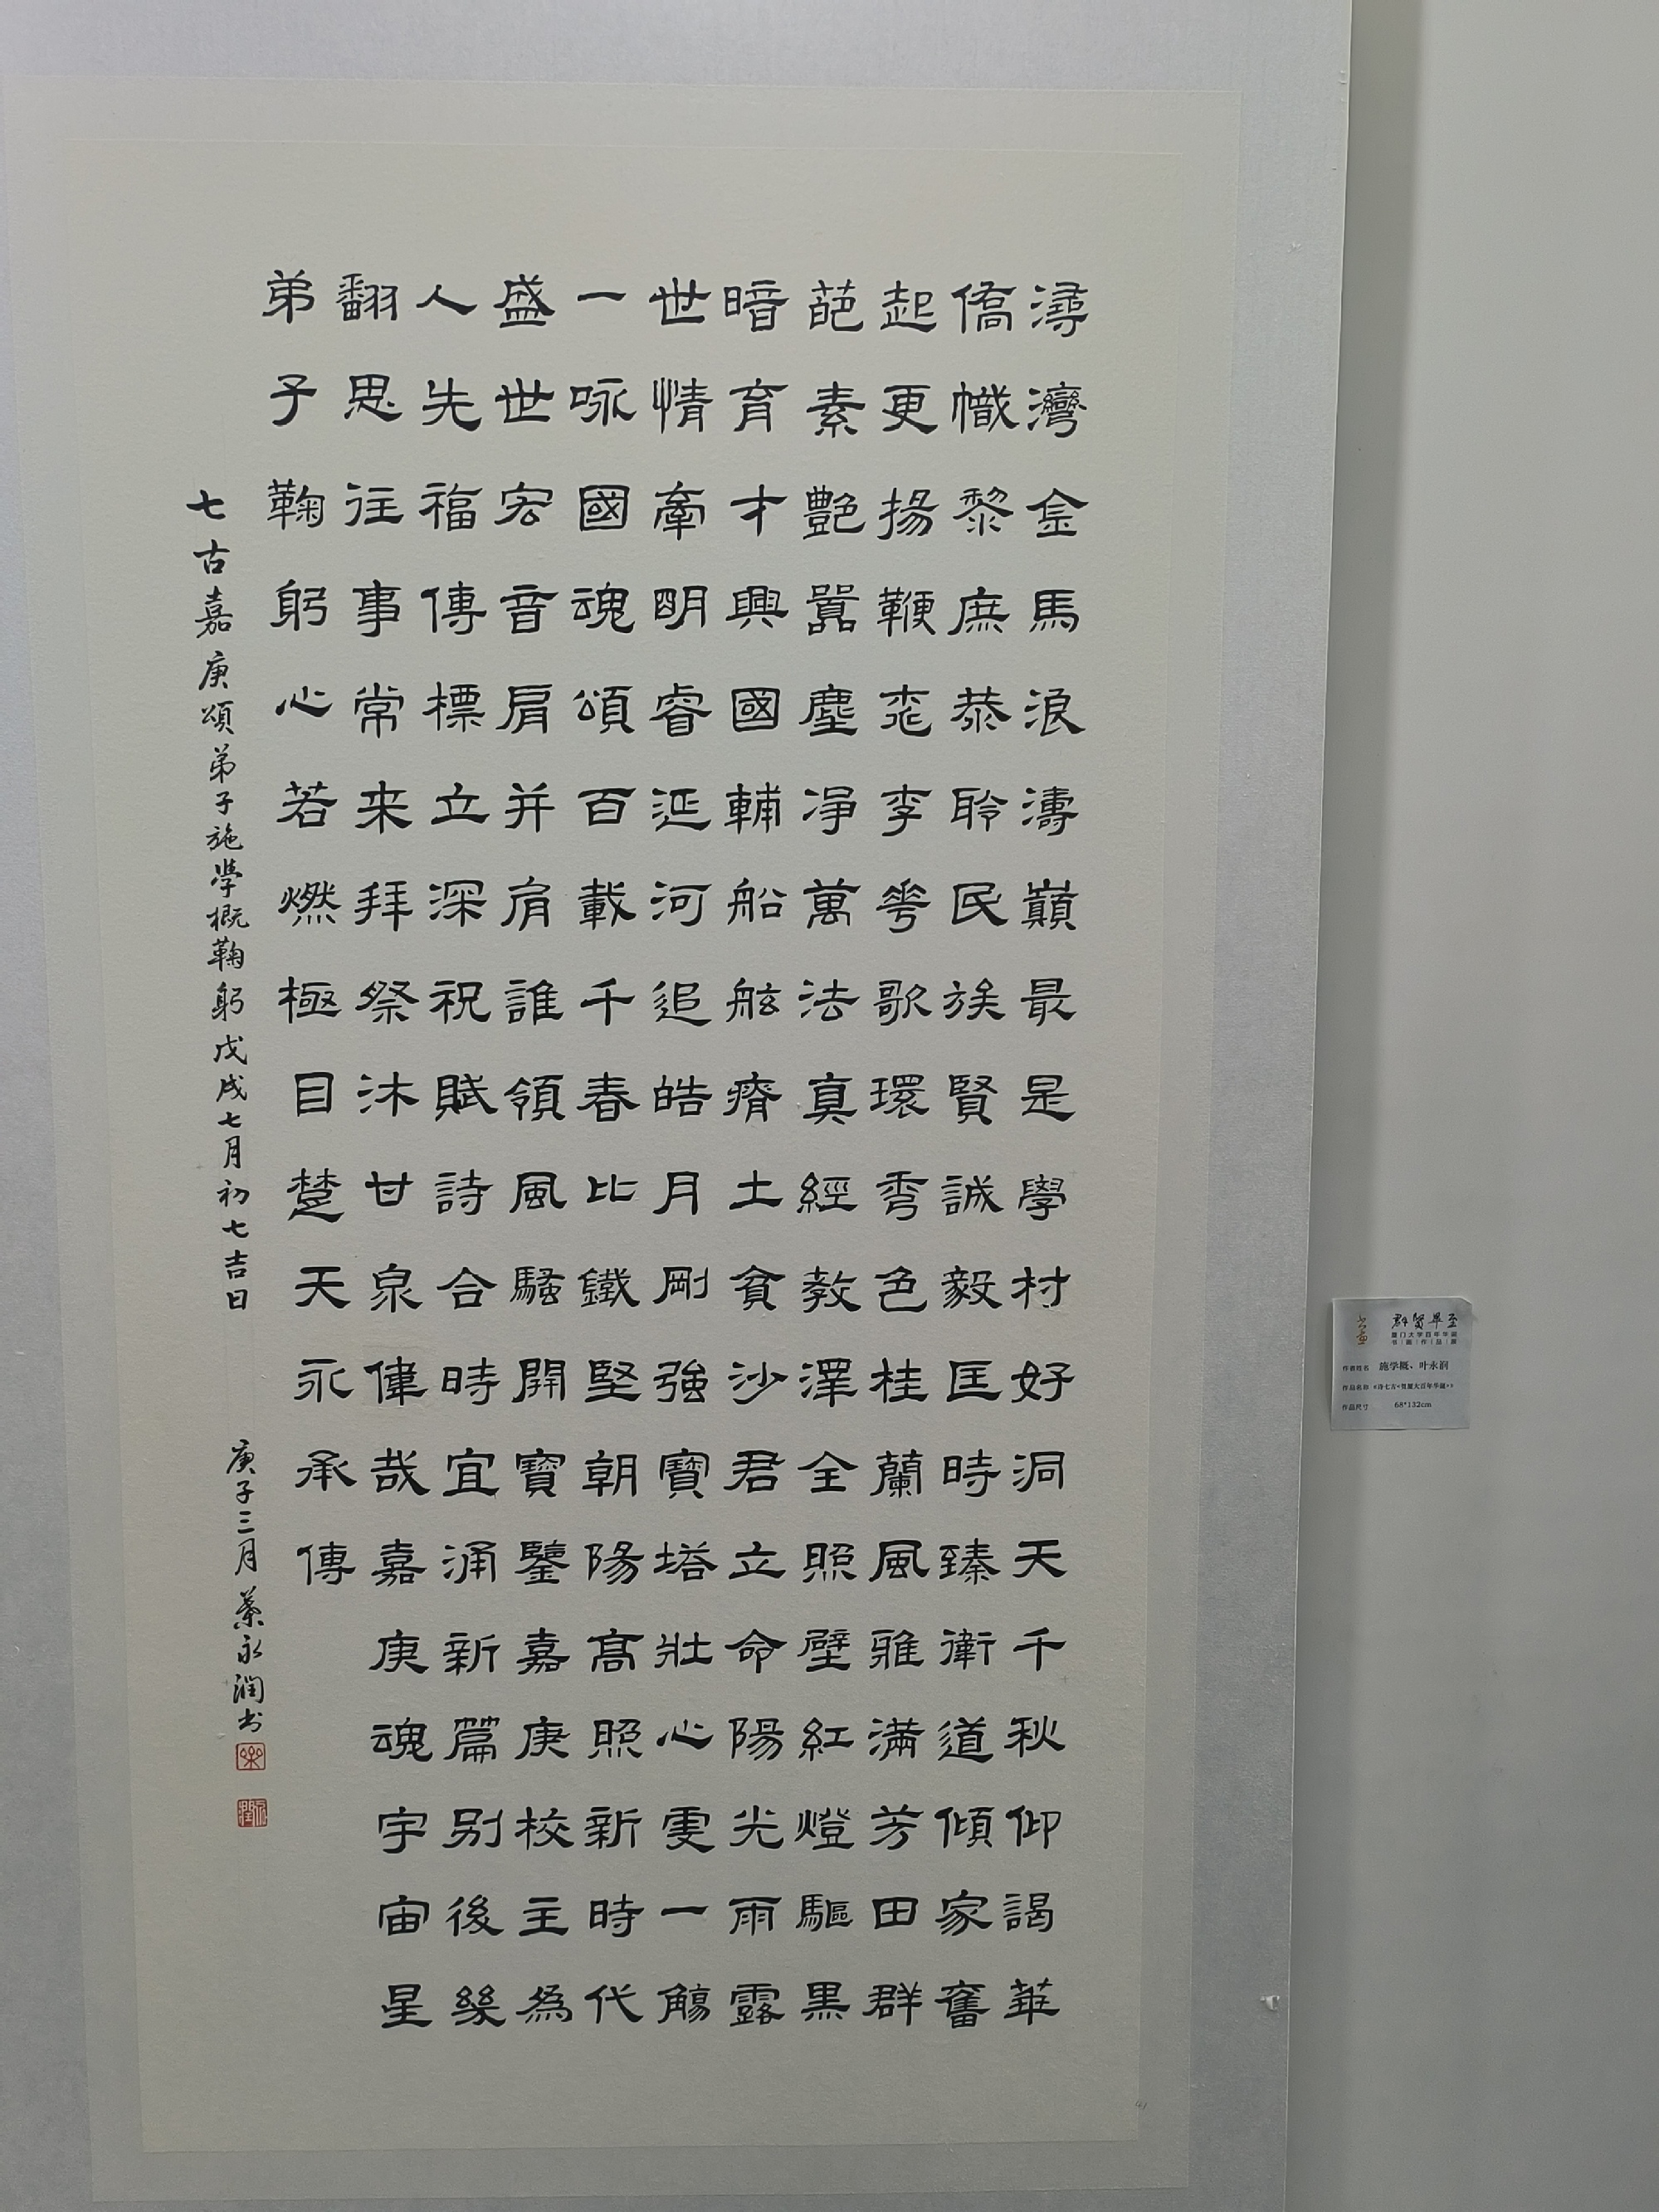 潯灣金馬浪濤巔最是學村好洞天千秋仰謁華
僑幟黎庶恭聆民族賢誠毅匡時臻衛道傾家奮
起更揚鞭桃李芳歌環秀色桂蘭風雅滿芳田群
葩素艷囂塵淨萬法真經教澤全照壁紅燈驅黑
暗育才興國輔船舷瘠土貧沙君立命陽光雨露
世情牽明睿延河追皓月剛強寶塔壯心雯一觴
一咏國魂頌百載千春比鐵堅朝陽高照新時代
盛世宏音肩并肩誰領風騷開寶鑒嘉庚校主為
人先福傳標立深祝賦詩合時宜涌新篇別後幾
翻思往事常来拜祭沐甘泉偉哉嘉庚魂宇宙星
弟子鞠躬心若燃極目楚天永承傳
七古嘉庚頌弟子施學概鞠躬戊戌七月初七吉日
庚子三月葉永潤书
群贤毕至
厦门大学百年华诞
书画作品展
作者姓名 施学概、叶永润
作品名称 《诗七古<贺厦大百年华诞>》
作品尺寸 68*132cm